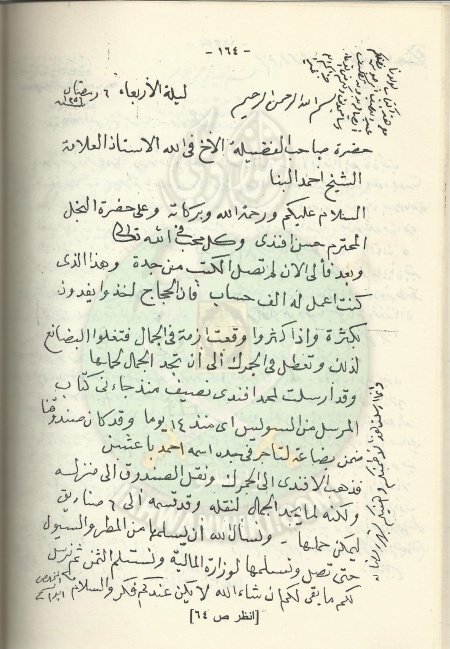 - ١٦٤ -
ليلة الأربعاء ٦ رمضان
بسم الله الرحمن الرحيم
حضرة صاحب الفضيلة الأخ في الله الاستاذ العلامة
الشيخ احمد البنا
السلام عليكم ورحمة الله وبركاته وعلى حضرة النجل
المحترم حسن افندى وكل محب في الله تعالى
وبعد فألى الان لم تصل الكتب من جدة وهذا الذى
كنت اعمل له الف حساب فان الحجاج اخذوا يفدون
بكثرة واذا كثروا وقعت ازمة في الجمال فتغلوا البضائع
لذلك وتعطل في الجمرك الى أن تجد الجمال لحملها
وقد أرسلت لمحمد افندى نصيف منذ جاءنى كتاب
المرسل من السويس اى منذ ١٤ يوما وقد كان صندوقنا
ضمن بضاعة لتاجر في جده اسمه احمد باعشن
فذهب الافندى الى الجمرك ونقل الصندوق الى منزله
ولكنه لما يجد الجمال لنقله وقد قسمه الى ٦ صناديق
ليمكن حملها - ونسأل الله أن يسلمها من المطر والسيول
حتى تصل ونسلمها لوزارة المالية ونستلم الثمن ثم نرسل
لكم ما بقى لكم ان شاء الله لا يكن عندكم فكر والسلام
[انظر ص ٦٤]